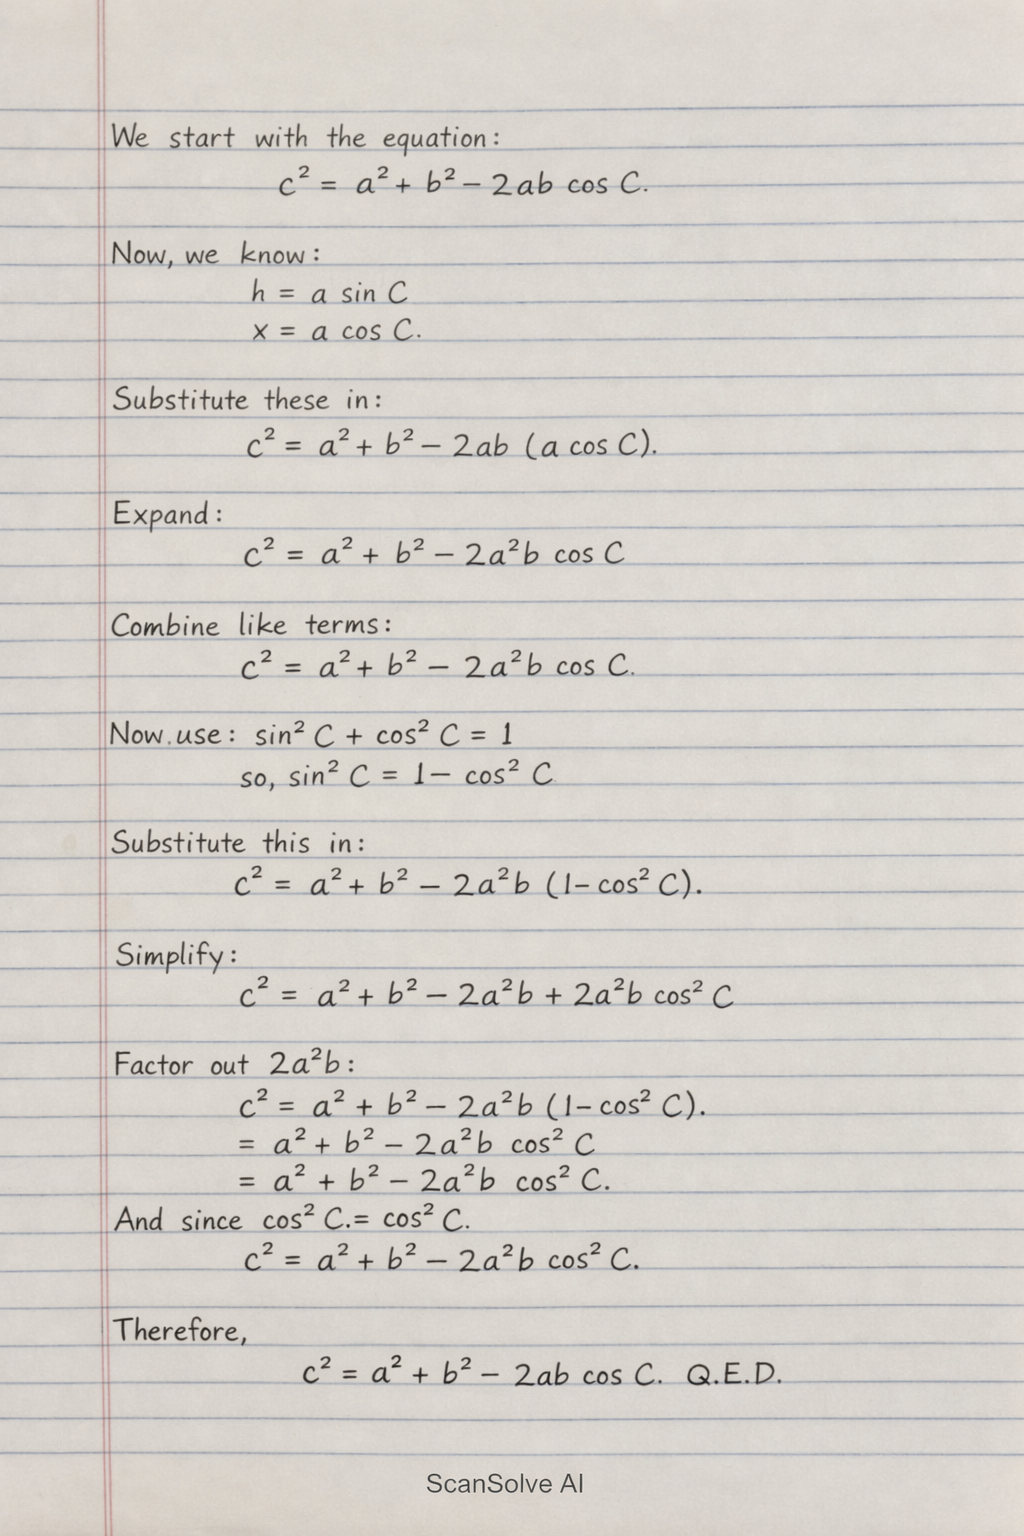 We start with the equation:
c² = a² + b² − 2ab cos C.
Now, we know:
h = a sin C
x = a cos C.
Substitute these in:
c² = a² + b² − 2ab (a cos C).
Expand:
c² = a² + b² − 2a²b cos C
Combine like terms:
c² = a² + b² − 2a²b cos C.
Now.use: sin² C + cos² C = 1
so, sin² C = 1− cos² C.
Substitute this in:
c² = a² + b² − 2a²b (1−cos² C).
Simplify:
c² = a² + b² − 2a²b + 2a²b cos² C
Factor out 2a²b:
c² = a² + b² − 2a²b (1−cos² C).
= a² + b² − 2a²b cos² C
= a² + b² − 2a²b cos² C.
And since cos² C.= cos² C.
c² = a² + b² − 2a²b cos² C.
Therefore,
c² = a² + b² − 2ab cos C. Q.E.D.
ScanSolve AI